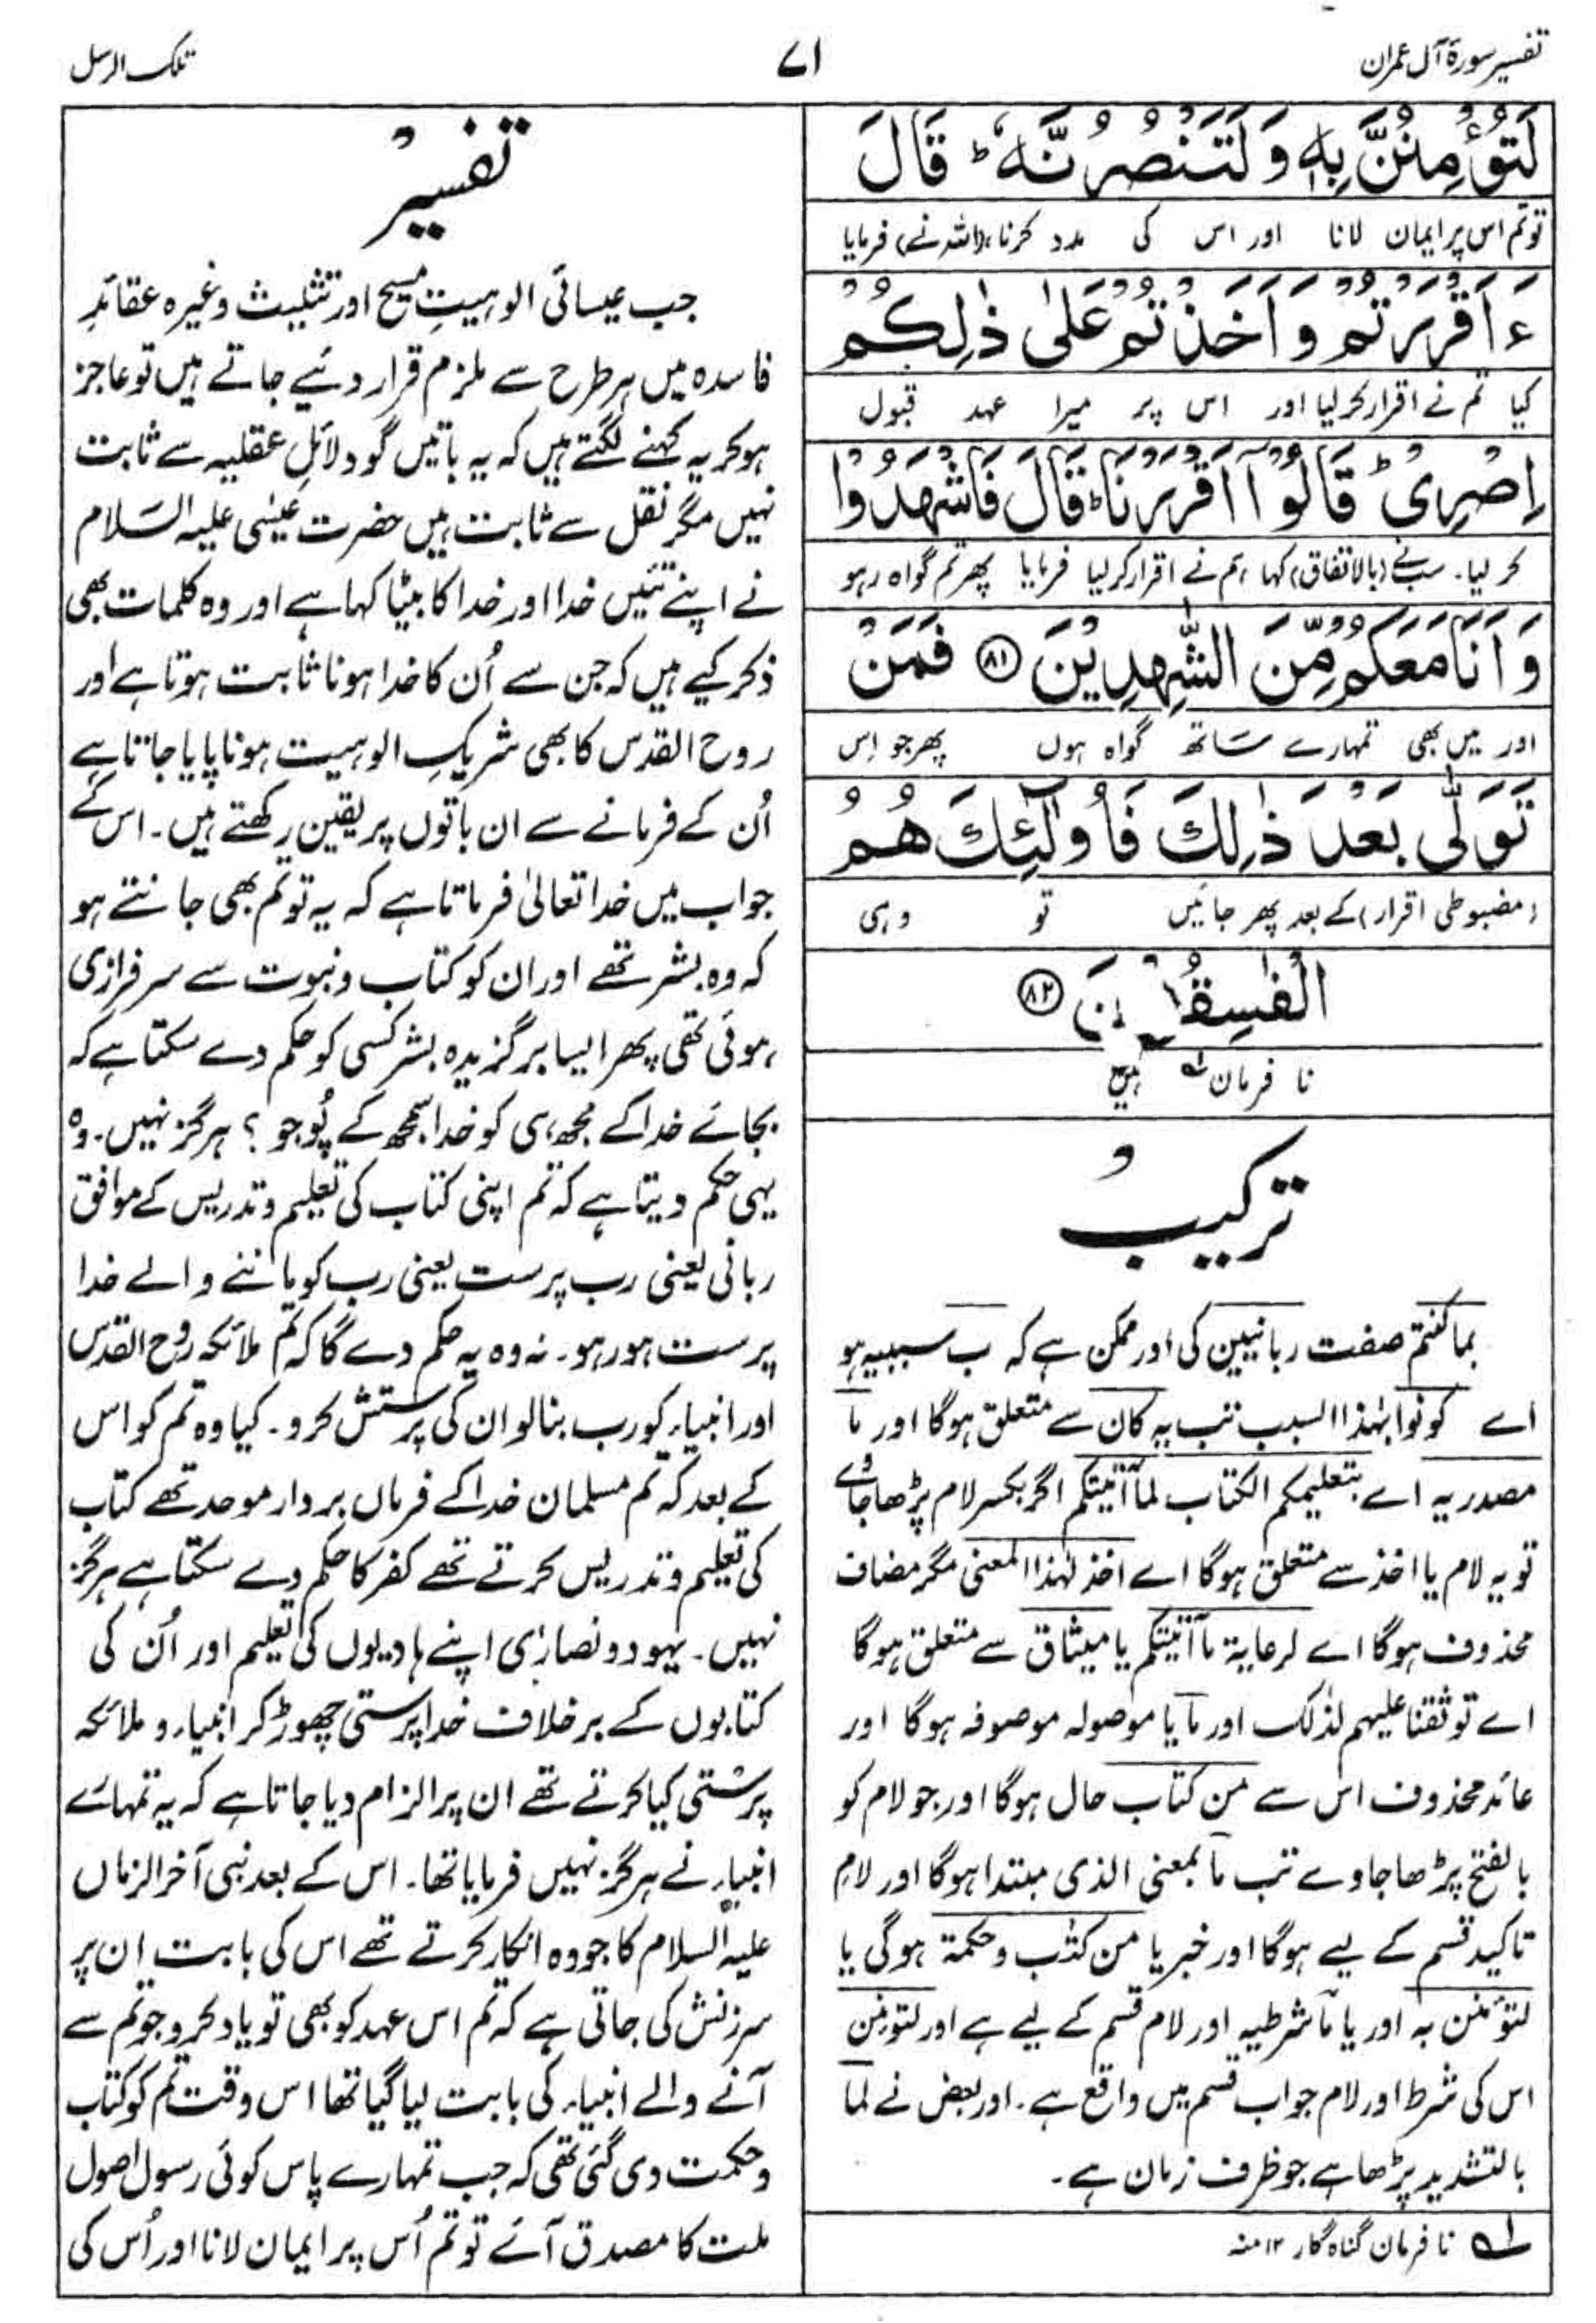 تفسیر سورۃ آل عمران
۷۱
تلک الرسل
لَتُؤْمِنُنَّ بِهٖ وَلَتَنْصُرُنَّهٗ ؕ قَالَ
تو تم اس پر ایمان لانا اور اس کی مدد کرنا، (اللہ نے) فرمایا
ءَاَقْرَرْتُمْ وَاَخَذْتُمْ عَلٰى ذٰلِكُمْ
کیا تم نے اقرار کر لیا اور اس پر میرا عہد قبول
اِصْرِىْ ؕ قَالُوْۤا اَقْرَرْنَا ؕ قَالَ فَاشْهَدُوْا
کر لیا۔ سب نے (بالاتفاق) کہا ہم نے اقرار کر لیا فرمایا پھر تم گواہ رہو
وَاَنَا مَعَكُمْ مِّنَ الشّٰهِدِيْنَ ﴿۸۱﴾ فَمَنْ
اور میں بھی تمہارے ساتھ گواہ ہوں پھر جو اِس
تَوَلّٰى بَعْدَ ذٰلِكَ فَاُولٰٓئِكَ هُمُ
(مضبوطی اقرار) کے بعد پھر جائیں تو وہی
الْفٰسِقُوْنَ ﴿۸۲﴾
نا فرمان لہ ہیں
ترکیب
بما کنتم صفت ربانیین کی اور ممکن ہے کہ ب سببیہ ہو
اے کونوا بہٰذا السبب تب یہ کان سے متعلق ہوگا اور ما
مصدریہ اے بتعلیمکم الکتاب لما آتیتکم اگر بکسر لام پڑھا جاوے
تو یہ لام یا اخذ سے متعلق ہوگا اے اخذ لہٰذا المعنی مگر مضاف
محذوف ہوگا اے لرعایۃ ما آتیتکم یا میثاق سے متعلق ہوگا
اے توثقنا علیہم لذٰلک اور ما یا موصولہ موصوفہ ہوگا اور
عائد محذوف اس سے من کتاب حال ہوگا اور جو لام کو
بالفتح پڑھا جاوے تب ما بمعنی الذی مبتدا ہوگا اور لام
تاکید قسم کے لیے ہوگا اور خبر یا من کتٰب وحکمۃ ہوگی یا
لتؤمنن بہ اور یا ما شرطیہ اور لام قسم کے لیے ہے اور لتؤمنن
اس کی شرط اور لام جواب قسم میں واقع ہے۔ اور بعض نے لما
بالتشدید پڑھا ہے جو ظرف زمان ہے۔
لہ نا فرمان گناہ گار ۱۲ منہ
تفسیر
جب عیسائی الوہیتِ مسیح اور تثلیث وغیرہ عقائدِ
فاسدہ میں ہر طرح سے ملزم قرار دئیے جاتے ہیں تو عاجز
ہوکر یہ کہنے لگتے ہیں کہ یہ باتیں گو دلائلِ عقلیہ سے ثابت
نہیں مگر نقل سے ثابت ہیں حضرت عیسٰی علیہ السلام
نے اپنے تئیں خدا اور خدا کا بیٹا کہا ہے اور وہ کلمات بھی
ذکر کیے ہیں کہ جن سے اُن کا خدا ہونا ثابت ہوتا ہے اور
روح القدس کا بھی شریکِ الوہیت ہونا پایا جاتا ہے
اُن کے فرمانے سے ان باتوں پر یقین رکھتے ہیں۔ اس کے
جواب میں خدا تعالیٰ فرماتا ہے کہ یہ تو تم بھی جانتے ہو
کہ وہ بشر تھے اور ان کو کتاب و نبوت سے سرفرازی
ہوئی تھی پھر ایسا برگزیدہ بشر کسی کو حکم دے سکتا ہے کہ
بجائے خدا کے مجھ ہی کو خدا سمجھ کے پُوجو؟ ہرگز نہیں۔ وہ
یہی حکم دیتا ہے کہ تم اپنی کتاب کی تعلیم و تدریس کے موافق
ربانی یعنی رب پرست یعنی رب کو ماننے والے خدا
پرست ہو رہو۔ نہ وہ یہ حکم دے گا کہ تم ملائکہ روح القدس
اور انبیاء کو رب بنالو ان کی پرستش کرو۔ کیا وہ تم کو اس
کے بعد کہ تم مسلمان خدا کے فرماں بردار موحد تھے کتاب
کی تعلیم و تدریس کرتے تھے کفر کا حکم دے سکتا ہے ہرگز
نہیں۔ یہود و نصارٰی اپنے ہادیوں کی تعلیم اور اُن کی
کتابوں کے برخلاف خدا پرستی چھوڑ کر انبیاء و ملائکہ
پرستی کیا کرتے تھے ان پر الزام دیا جاتا ہے کہ یہ تمہارے
انبیاء نے ہرگز نہیں فرمایا تھا۔ اس کے بعد نبی آخر الزماں
علیہ السلام کا جو وہ انکار کرتے تھے اس کی بابت ان پر
سرزنش کی جاتی ہے کہ تم اس عہد کو بھی تو یاد کرو جو تم سے
آنے والے انبیاء کی بابت لیا گیا تھا اس وقت تم کو کتاب
و حکمت دی گئی تھی کہ جب تمہارے پاس کوئی رسول اصول
ملت کا مصدق آئے تو تم اُس پر ایمان لانا اور اُس کی